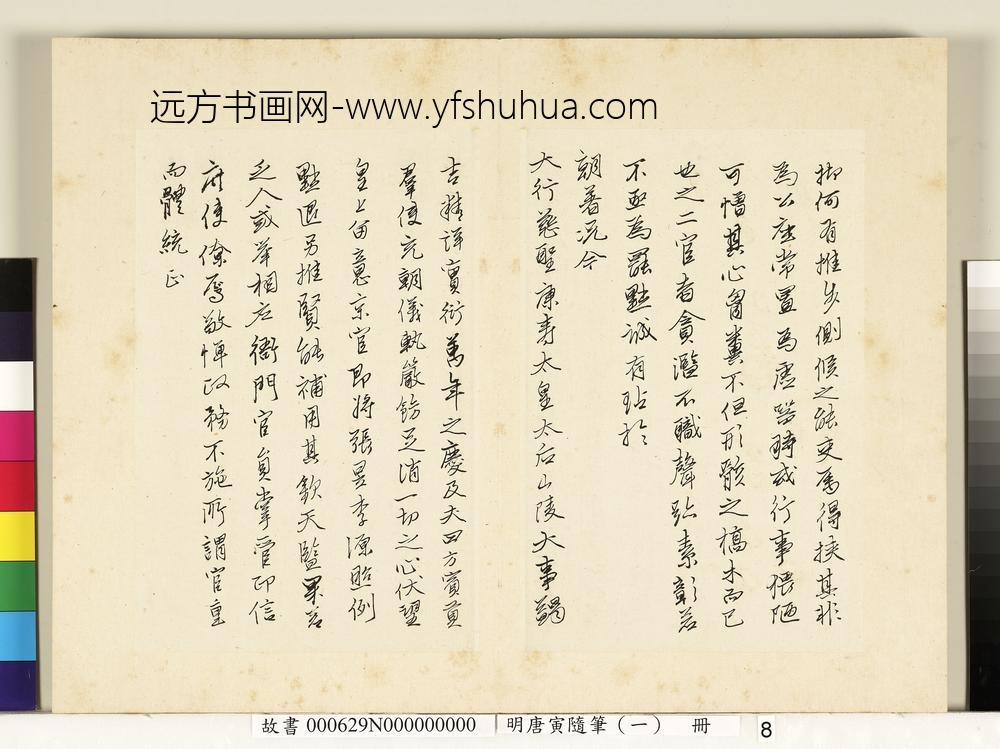 远方书画网-www.yfshuhua.com
抑何有推步測候之能吏焉得挾其非
為公座常置為虛器時或行事猥陋
可憎其心胃糞不但形骸之槁木而已
也之二官者貪濫不職聲跡素彰若
不亟為罷黜誠有玷於
朝著況今
大行慈聖康壽太皇太后山陵大事
吉精詳實衍萬年之慶及夫四方賓貢
羣使充朝儀執嚴飭足消一切之心伏望
皇上留意京官即將張昊李源照例
黜退另推賢能補用其欽天監果若
乏人或举相應衙門官員掌管印信
府使僚屬敬憚政務不施所謂官重
而體統正
故書 000629N000000000 明唐寅隨筆(一) 冊 8